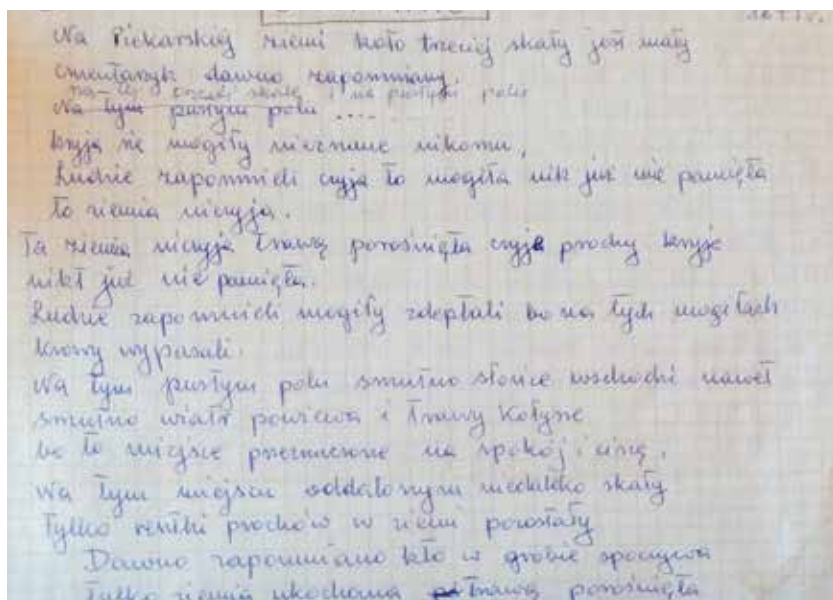 Na Piekarskiej ziemi koło trzeciej skały jest mały
cmentarzyk dawno zapomniany.
na tej trzeciej skale i na pustym polu
Na tym pustym polu ....
kryją się mogiły nieznane nikomu,
Ludzie zapomnieli czyja to mogiła nik już nie pamięta
to ziemia niczyja.
Ta ziemia niczyja trawą porośnięta czyje prochy kryje
nikt już nie pamięta.
Ludzie zapomnieli mogiły zdeptali bo na tych mogiłach
krowy wypasali.
Na tym pustym polu smutno słońce wschodzi nawet
smutno wiatr powiewa i trawy kołysze
bo to miejsce przeznaczone na spokój i ciszę.
Na tym miejscu oddalonym niedaleko skały
tylko resztki prochów w ziemi pozostały
Dawno zapomniano kto w grobie spoczywa
tylko ziemia ukochana trawą porośnięta